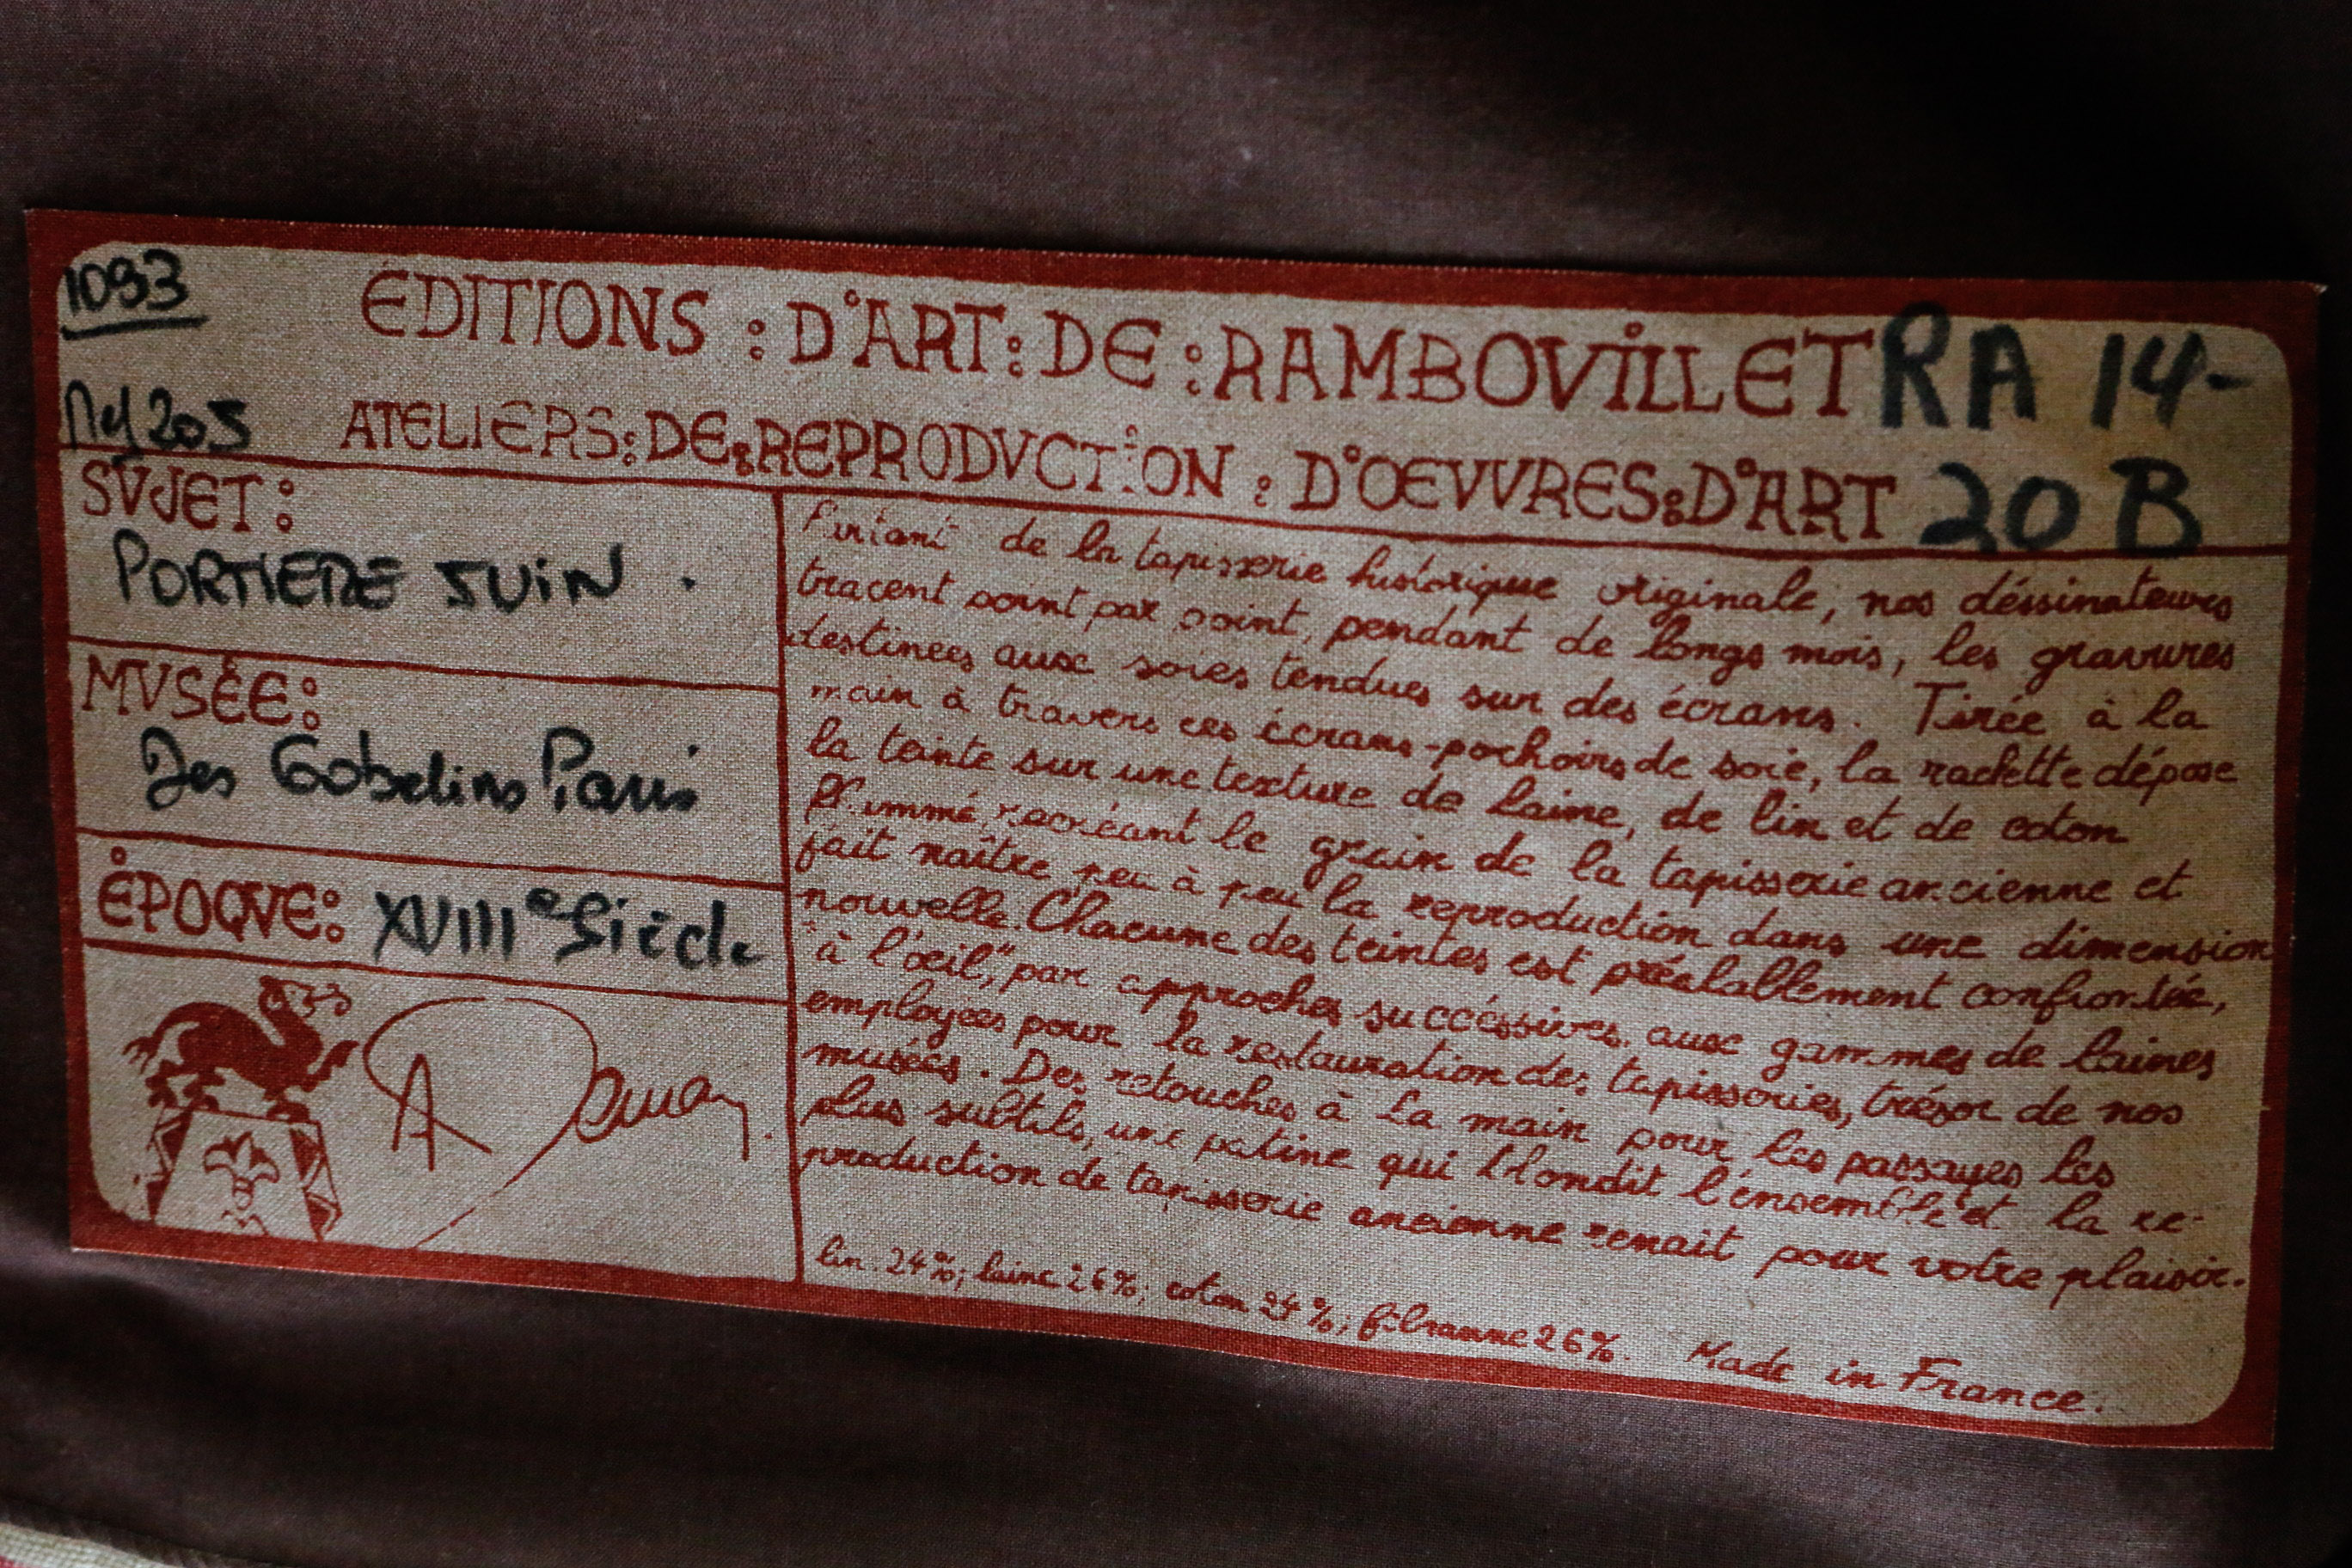 1093
ÉDITIONS : D'ART : DE : RAMBOVILLET RA 14-
ATELIERS : DE : REPRODVCTION : D'OEVVRES : D'ART 20 B
SVJET :
PORTIERE JUIN .
MVSÉE :
Des Gobelins Paris
ÉPOQVE : XVIIIe Siècle
Partant de la tapisserie historique originale, nos déssinateurs
tracent point par point, pendant de longs mois, les gravures
destinées aux soies tendues sur des écrans. Tirée à la
main à travers ces écrans-pochoirs de soie, la raclette dépose
la teinte sur une texture de laine, de lin et de coton
recréant le grain de la tapisserie ancienne et
fait naître peu à peu la reproduction dans une dimension
nouvelle. Chacune des teintes est préalablement confrontée,
"à l'œil," par approches succéssives aux gammes de laines
employées pour la restauration des tapisseries, trésor de nos
musées. Des retouches à la main pour les passages les
plus subtils, une patine qui blondit l'ensemble et la re-
production de tapisserie ancienne renait pour votre plaisir.
lin. 24%; laine 26%; coton 24%; fibranne 26%. Made in France.